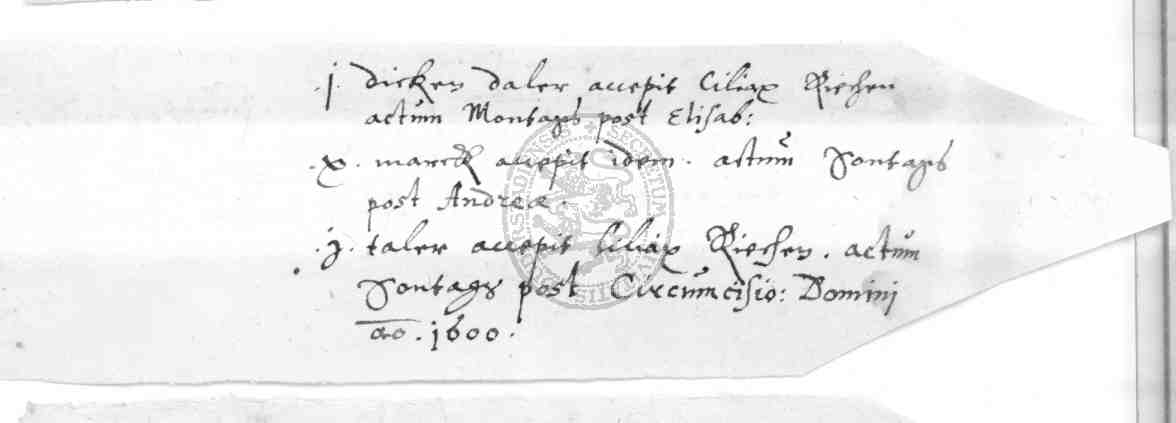 .j. dicken daler accepit Ciliax Riechen
actum Montags post Elisab:
.x. marck accepit idem. actum Sontags
post Andreæ.
.j. taler accepit Ciliax Riechen. actum
Sontags post Circumcisio: Domini
ao. 1600.